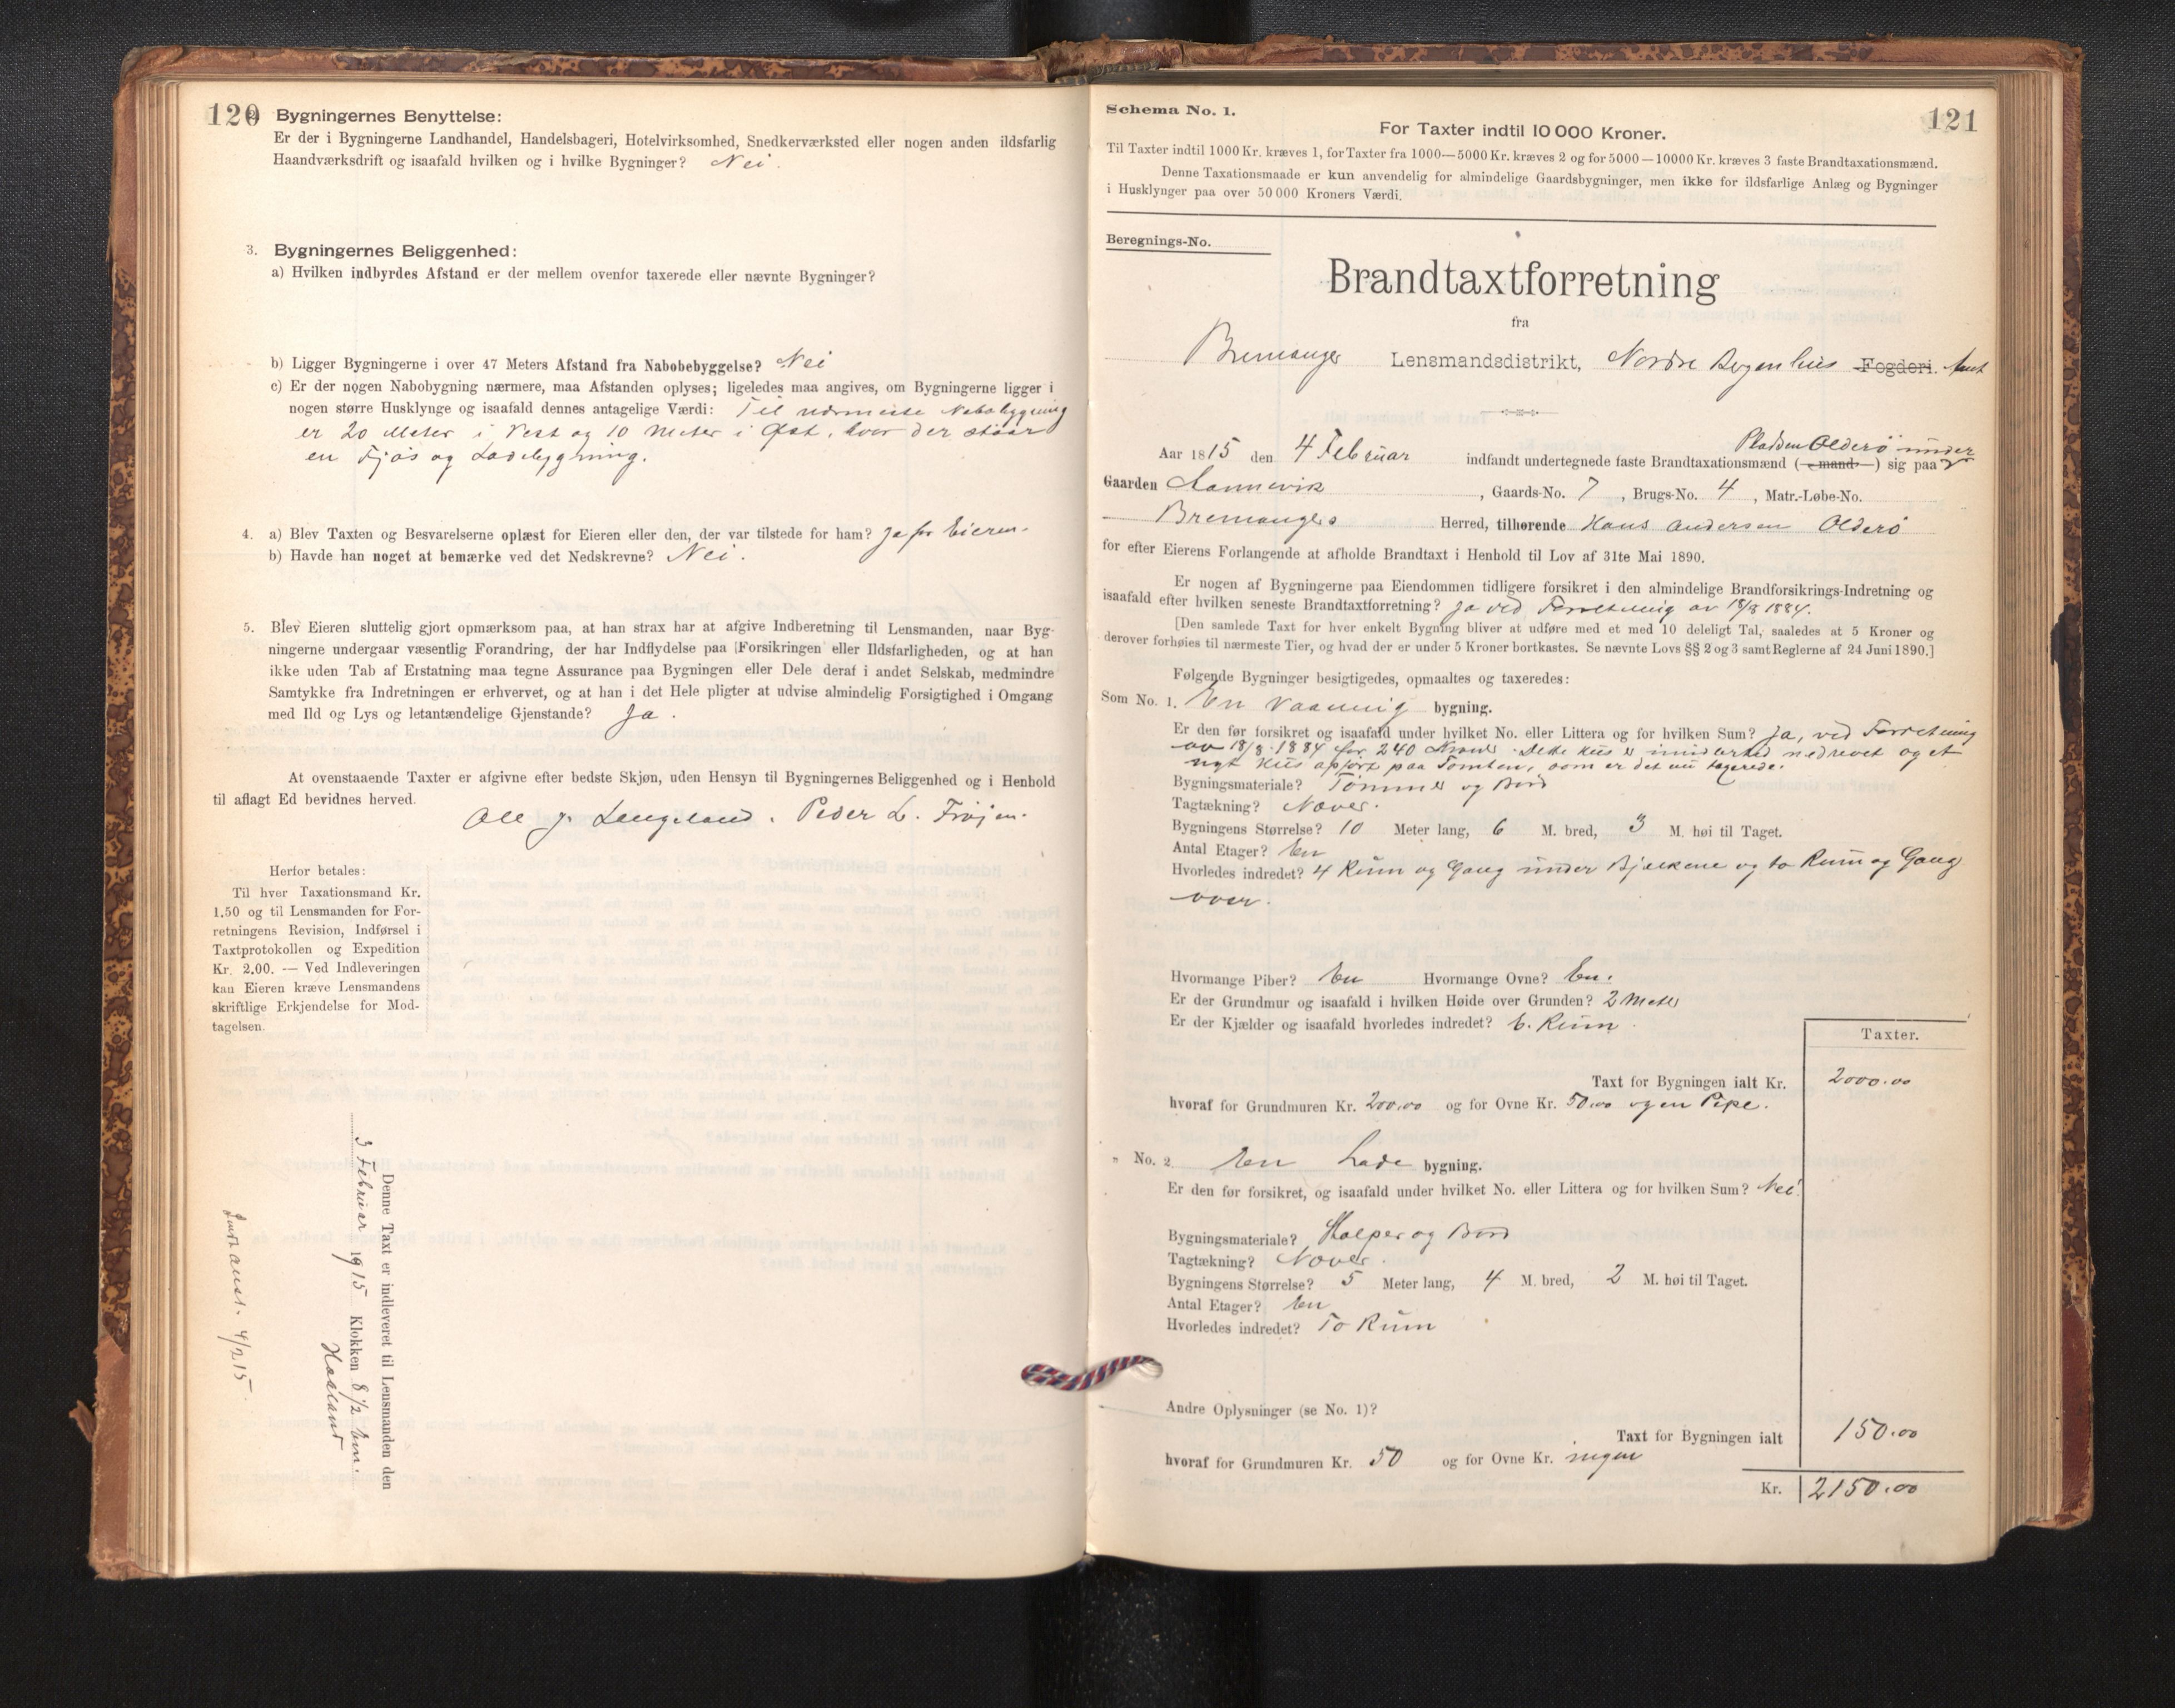 120
2. Bygningernes Benyttelse:
Er der i Bygningerne Landhandel, Handelsbageri, Hotelvirksomhed, Snedkerværksted eller nogen anden ildsfarlig
Haandværksdrift og isaafald hvilken og i hvilke Bygninger? Nei.
3. Bygningernes Beliggenhed:
a) Hvilken indbyrdes Afstand er der mellem ovenfor taxerede eller nævnte Bygninger?
b) Ligger Bygningerne i over 47 Meters Afstand fra Nabobebyggelse? Nei
c) Er der nogen Nabobygning nærmere, maa Afstanden oplyses; ligeledes maa angives, om Bygningerne ligger i
nogen større Husklynge og isaafald dennes antagelige Værdi: Til nærmeste Nabobygning
er 20 Meter i Vest og 10 Meter i Øst, hvor der staar
en Fjøs og Ladebygning.
4. a) Blev Taxten og Besvarelserne oplæst for Eieren eller den, der var tilstede for ham? Ja for Eieren.
b) Havde han noget at bemærke ved det Nedskrevne? Nei.
5. Blev Eieren sluttelig gjort opmærksom paa, at han strax har at afgive Indberetning til Lensmanden, naar Byg-
ningerne undergaar væsentlig Forandring, der har Indflydelse paa Forsikringen eller Ildsfarligheden, og at han
ikke uden Tab af Erstatning maa tegne Assurance paa Bygningen eller Dele deraf i andet Selskab, medmindre
Samtykke fra Indretningen er erhvervet, og at han i det Hele pligter at udvise almindelig Forsigtighed i Omgang
med Ild og Lys og letantændelige Gjenstande? Ja.
At ovenstaaende Taxter er afgivne efter bedste Skjøn, uden Hensyn til Bygningernes Beliggenhed og i Henhold
til aflagt Ed bevidnes herved.
Ole J. Langeland. Peder L. Frøjen.
Herfor betales:
Til hver Taxationsmand Kr.
1.50 og til Lensmanden for For-
retningens Revision, Indførsel i
Taxtprotokollen og Expedition
Kr. 2.00. — Ved Indleveringen
kan Eieren kræve Lensmandens
skriftlige Erkjendelse for Mod-
tagelsen.
Denne Taxt er indleveret til Lensmanden den
3 Februar 1915 Klokken 8 1/2 em.
4/2 15.
121
Schema No. 1.
For Taxter indtil 10 000 Kroner.
Til Taxter indtil 1000 Kr. kræves 1, for Taxter fra 1000—5000 Kr. kræves 2 og for 5000—10000 Kr. kræves 3 faste Brandtaxationsmænd.
Denne Taxationsmaade er kun anvendelig for almindelige Gaardsbygninger, men ikke for ildsfarlige Anlæg og Bygninger
i Husklynger paa over 50 000 Kroners Værdi.
Beregnings-No.
Brandtaxtforretning
fra
Bremanger Lensmandsdistrikt, Nordre Bergenhus Fogderi. Amt
Pladsen Olderø under
Aar 1815 den 4 Februar indfandt undertegnede faste Brandtaxationsmænd (-mand-) sig paa
Gaarden , Gaards-No. 7, Brugs-No. 4, Matr.-Løbe-No.
Bremangers Herred, tilhørende Hans Andersen Olderø
for efter Eierens Forlangende at afholde Brandtaxt i Henhold til Lov af 31te Mai 1890.
Er nogen af Bygningerne paa Eiendommen tidligere forsikret i den almindelige Brandforsikrings-Indretning og
isaafald efter hvilken seneste Brandtaxtforretning? Ja ved Forretning av 18/8 1884.
[Den samlede Taxt for hver enkelt Bygning bliver at udføre med et med 10 deleligt Tal, saaledes at 5 Kroner og
derover forhøies til nærmeste Tier, og hvad der er under 5 Kroner bortkastes. Se nævnte Lovs §§ 2 og 3 samt Reglerne af 24 Juni 1890.]
Følgende Bygninger besigtigedes, opmaaltes og taxeredes:
Som No. 1. En Vaanings bygning.
Er den før forsikret og isaafald under hvilket No. eller Littera og for hvilken Sum? Ja, ved Forretning
av 18/8 1884 for 240 Kroner. Dette hus er imidlertid nedrevet og et
nyt hus opført paa Tomten, som er det nu taxerede.
Bygningsmateriale? Tømmer og Bord
Tagtækning? Næver.
Bygningens Størrelse? 10 Meter lang, 6 M. bred, 3 M. høi til Taget.
Antal Etager? En
Hvorledes indredet? 4 Rum og Gang under Bjelkene og to Rum og Gang
over.
Hvormange Piber? En Hvormange Ovne? En.
Er der Grundmur og isaafald i hvilken Høide over Grunden? 2 Meter
Er der Kjælder og isaafald hvorledes indredet? Rum.
Taxter.
Taxt for Bygningen ialt Kr. 2000.00
hvoraf for Grundmuren Kr. 200.00 og for Ovne Kr. 50.00 og en Pipe.
" No. 2. En Lade bygning.
Er den før forsikret, og isaafald under hvilket No. eller Littera og for hvilken Sum? Nei.
Bygningsmateriale? Stolper og Bord
Tagtækning? Næver.
Bygningens Størrelse? 5 Meter lang, 4 M. bred, 2 M. høi til Taget.
Antal Etager? En
Hvorledes indredet? To Rum
Andre Oplysninger (se No. 1)?
Taxt for Bygningen ialt 150.00
hvoraf for Grundmuren Kr. 50 og for Ovne Kr. ingen
Kr. 2150.00